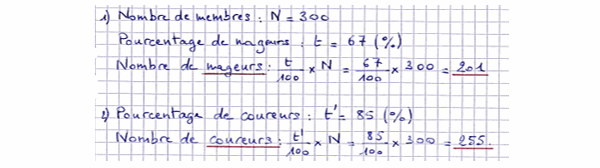 1) Nombre de membres : N = 300
Pourcentage de nageurs : t = 67 (%)
Nombre de nageurs : t/100 × N = 67/100 × 300 = 201
2) Pourcentage de coureurs : t' = 85 (%)
Nombre de coureurs : t'/100 × N = 85/100 × 300 = 255.